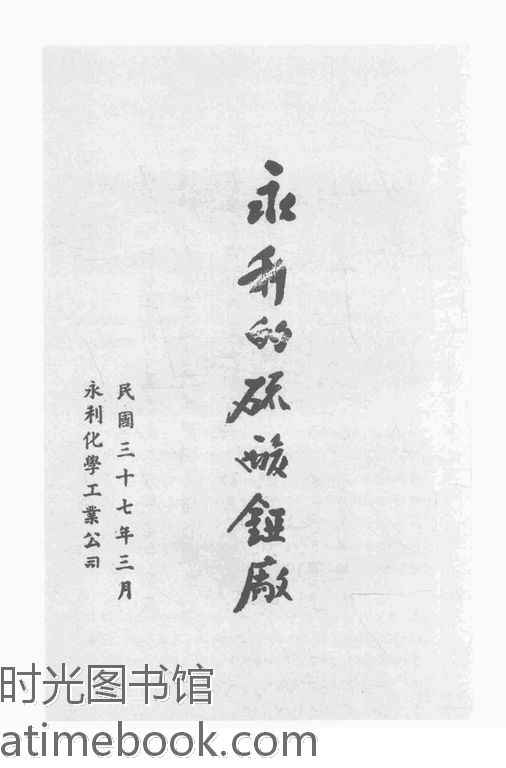 永利的硫酸錏廠
民國三十七年三月
永利化學工業公司
时光图书馆
atimebook.com